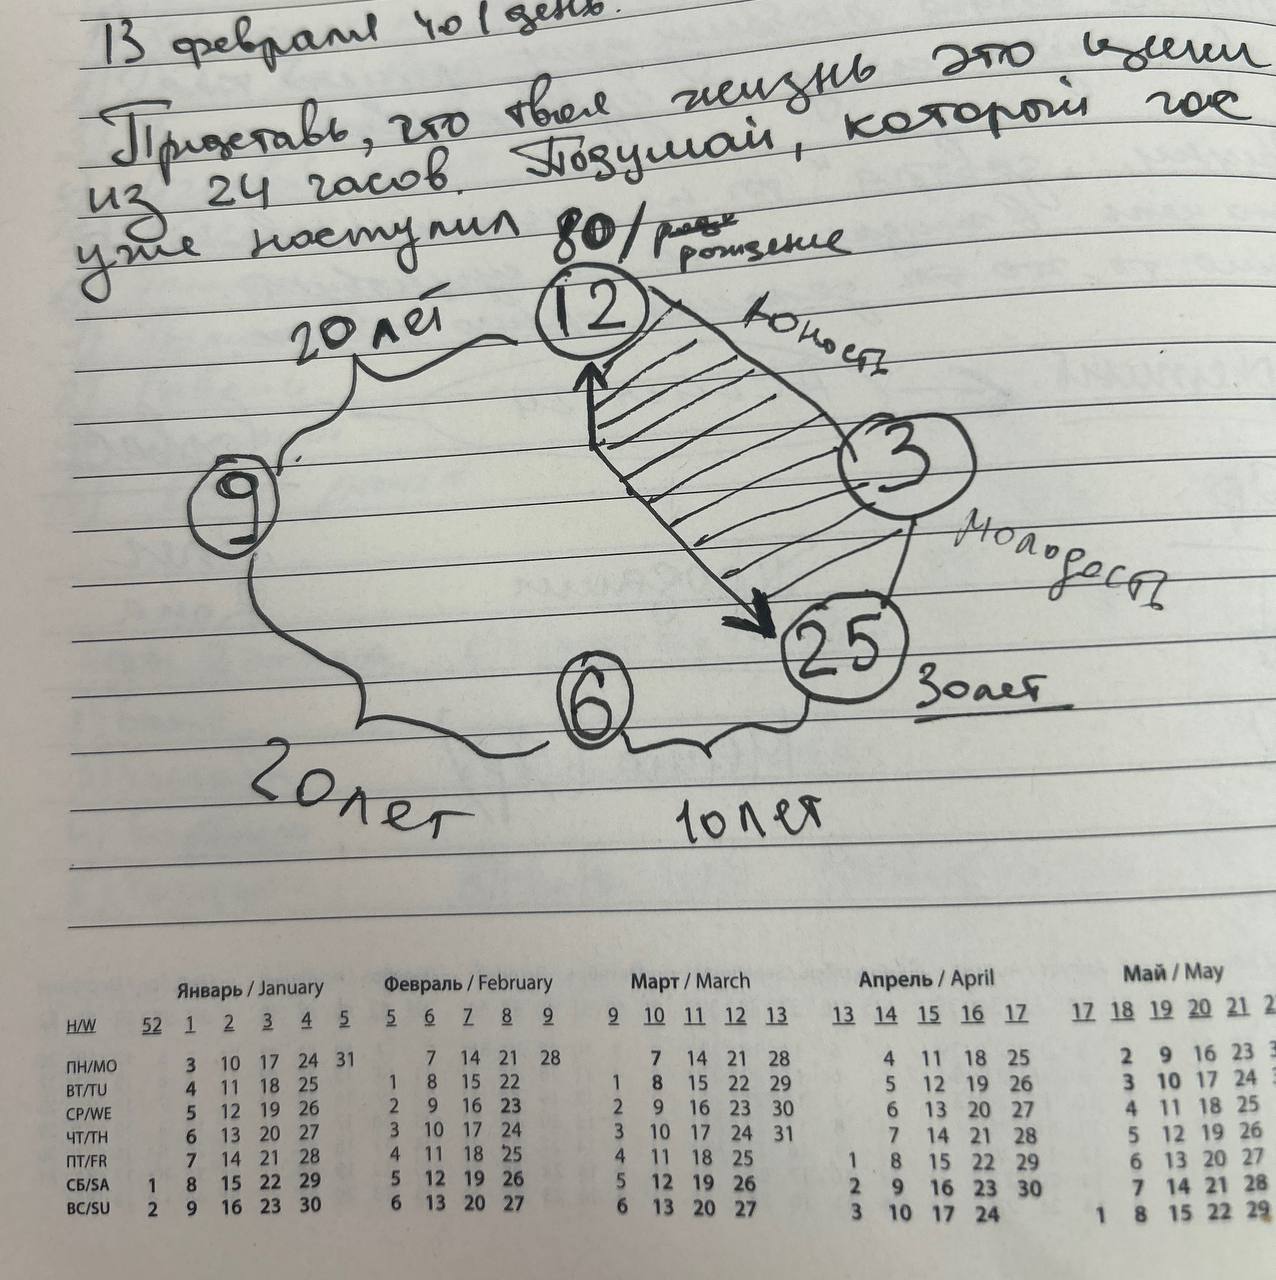 13 февраля 401 день.
Представь, что твоя жизнь это цикл
из 24 часов. Подумай, который час
уже наступил
80/
рождение
20 лет
12
Юность
9
3
Молодость
25
30 лет
6
20 лет
10 лет
Январь / January Февраль / February Март / March Апрель / April Май / May
Н/W 52 1 2 3 4 5 5 6 7 8 9 9 10 11 12 13 13 14 15 16 17 17 18 19 20 21
ПН/MO 3 10 17 24 31 7 14 21 28 7 14 21 28 4 11 18 25 2 9 16 23
ВТ/TU 4 11 18 25 1 8 15 22 1 8 15 22 29 5 12 19 26 3 10 17 24
СР/WE 5 12 19 26 2 9 16 23 2 9 16 23 30 6 13 20 27 4 11 18 25
ЧТ/TH 6 13 20 27 3 10 17 24 3 10 17 24 31 7 14 21 28 5 12 19 26
ПТ/FR 7 14 21 28 4 11 18 25 4 11 18 25 1 8 15 22 29 6 13 20 27
СБ/SA 1 8 15 22 29 5 12 19 26 5 12 19 26 2 9 16 23 30 7 14 21 28
ВС/SU 2 9 16 23 30 6 13 20 27 6 13 20 27 3 10 17 24 1 8 15 22 29